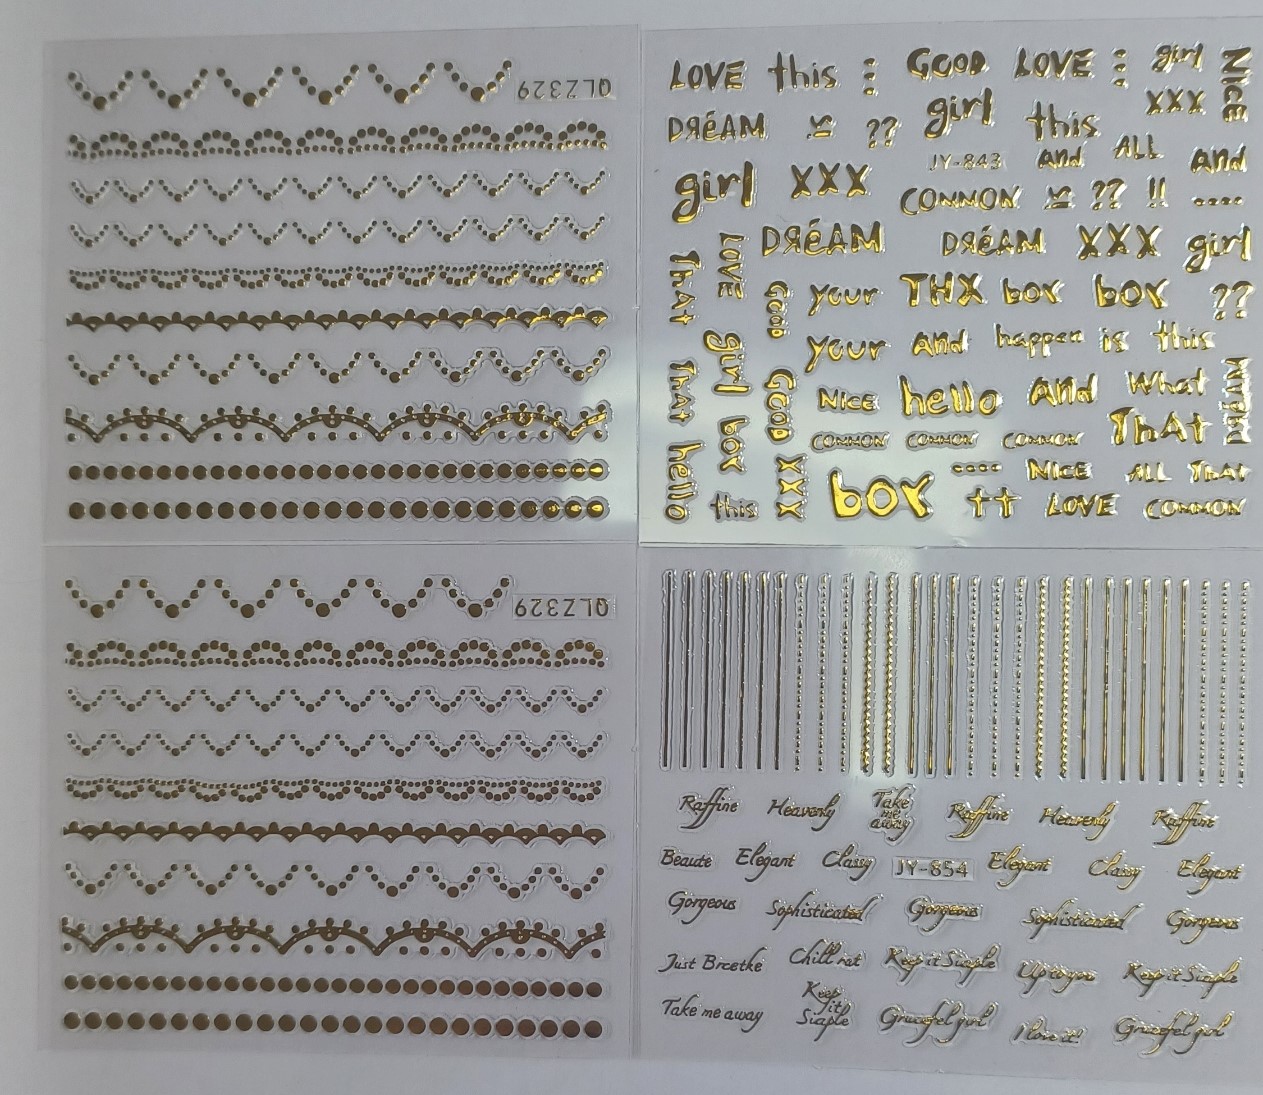 QLZ329
LOVE this : GOOD LOVE : girl NICE
DREAM is ?? girl this XXX
JY-843 and ALL and
girl XXX COMMON is ?? !! ....
LOVE DREAM DREAM XXX girl
THAT GOOD your THX box box ??
girl your and happen is this
THAT GOOD NICE hello and what
box COMMON COMMON COMMON THAT
hello XXX box .... NICE ALL THAT
this tt LOVE COMMON
QLZ329
Raffine Heavenly Take me away Raffine Heavenly Raffine
Beaute Elegant Classy JY-854 Elegant Classy Elegant
Gorgeous Sophisticated Gorgeous Sophisticated Gorgeous
Just Breetke Chill rat Keep it Siaple Up to you Keep it Siaple
Take me away Keep it Siaple Gracefel girl I love it! Gracefel girl